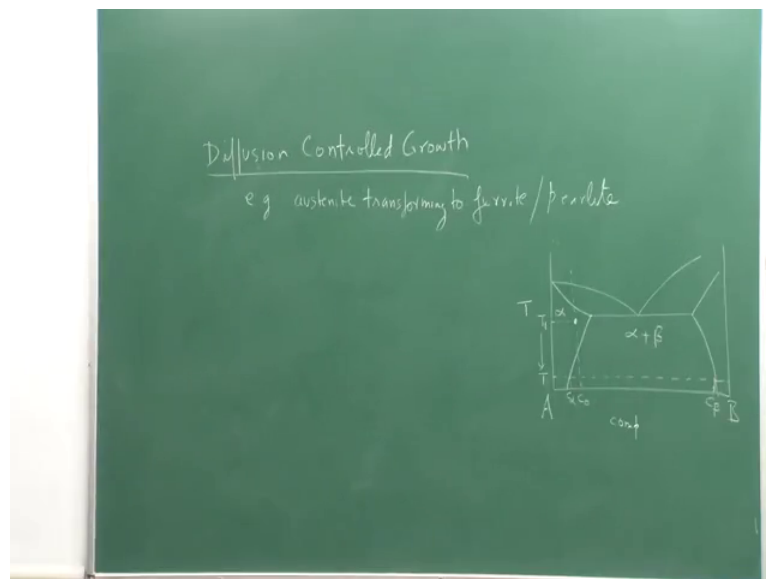 Diffusion Controlled Growth
e g austenite transforming to ferrite / pearlite
T T₁ α
α + β
T
A Cα C₀ Cβ B
comp